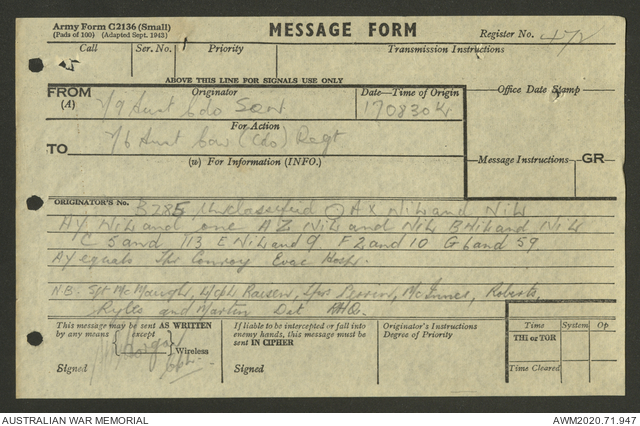 Army Form C2136 (Small)
(Pads of 100) (Adapted Sept. 1943)
MESSAGE FORM
Register No. 472
Call Ser. No. 1 Priority Transmission Instructions
ABOVE THIS LINE FOR SIGNALS USE ONLY
FROM
(A)
Originator
2/9 Aust Cdo Sqn
Date—Time of Origin
170830K
Office Date Stamp
For Action
TO
2/6 Aust Cav (Cdo) Regt
(w) For Information (INFO.)
Message Instructions GR
ORIGINATOR'S No.
3285 Unclassified O AX NiL and NiL
AY NiL and one AZ NiL and NiL B NiL and NiL
C 5 and 113 E NiL and 9 F 2 and 10 G 6 and 59
AY equals Tpr Conroy Evac Hosp.
NB. Sgt McMaugh, L/Cpl Tprs McInnes, Roberts,
and Martin Det RHQ.
This message may be sent AS WRITTEN
by any means except
Wireless
Signed Cpl.
If liable to be intercepted or fall into
enemy hands, this message must be
sent IN CIPHER
Signed
Originator's Instructions
Degree of Priority
Time System Op
THI or TOR
Time Cleared
AUSTRALIAN WAR MEMORIAL
AWM2020.71.947